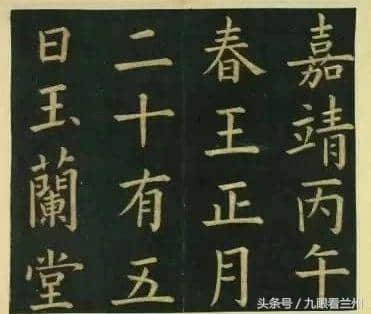 嘉靖丙午
春王正月
二十有五
日玉蘭堂
头条号/九眼看兰州